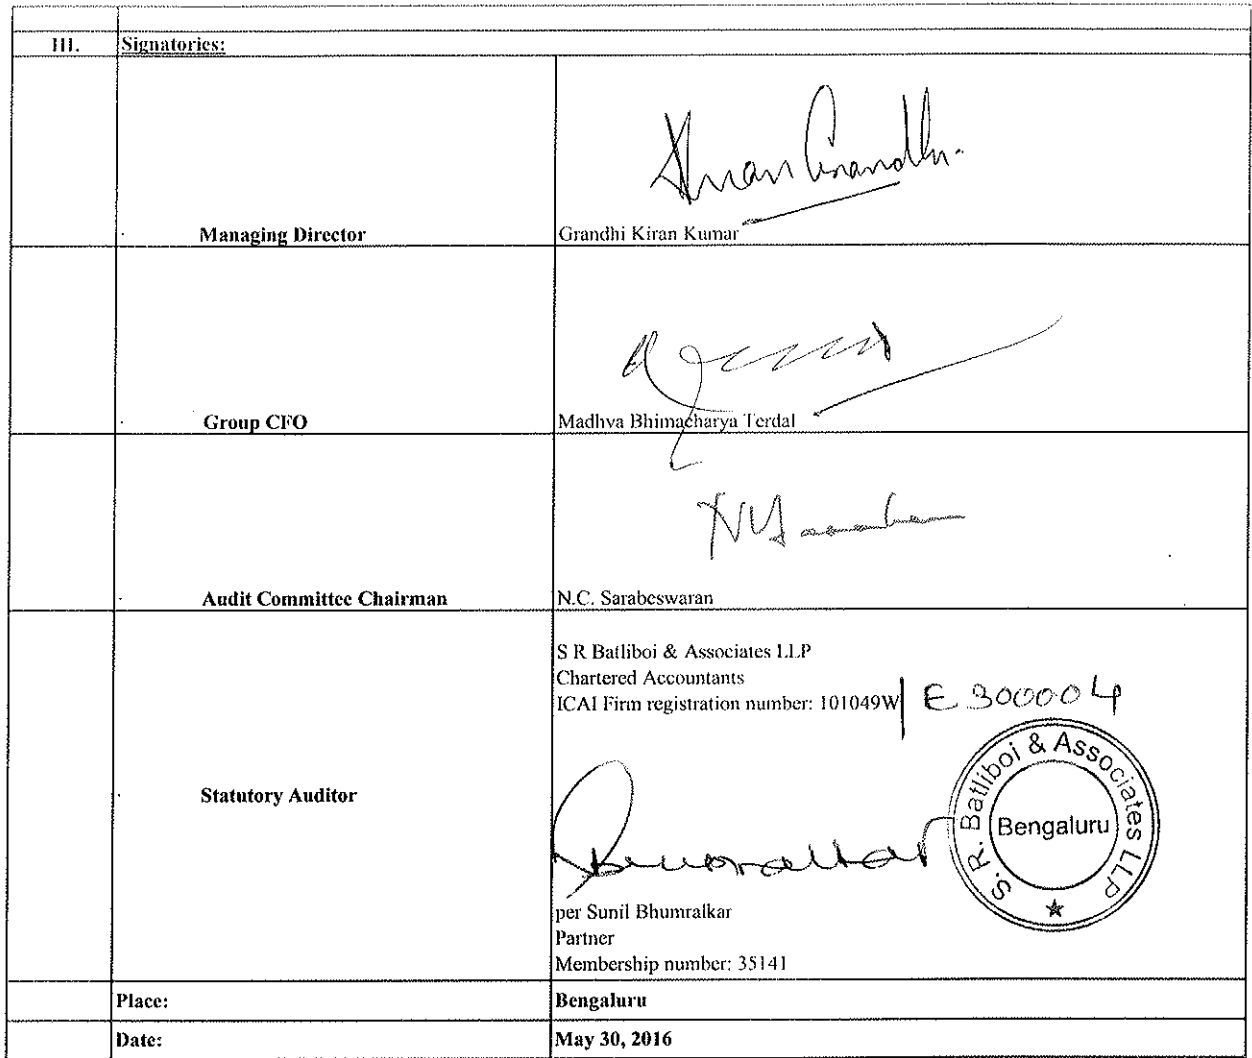 III. Signatories:
Kiran Grandhi
Managing Director Grandhi Kiran Kumar
Group CFO Madhva Bhimacharya Terdal
Audit Committee Chairman N.C. Sarabeswaran
S R Batliboi & Associates LLP
Chartered Accountants
ICAI Firm registration number: 101049W| E 300004
Statutory Auditor
S. R. Batliboi & Associates LLP
Bengaluru
per Sunil Bhumralkar
Partner
Membership number: 35141
Place: Bengaluru
Date: May 30, 2016